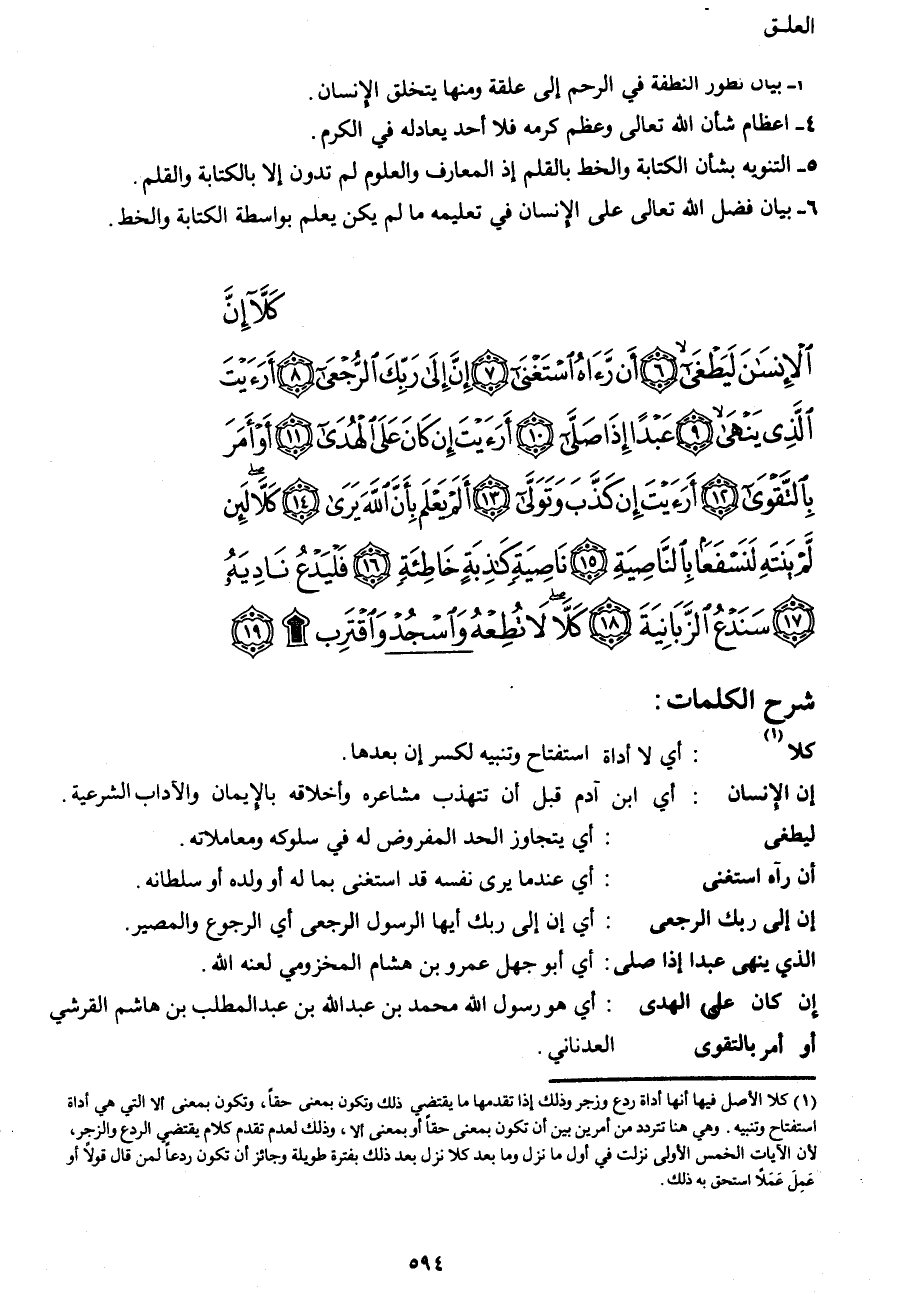 العلـق
١ـ بيان تطور النطفة في الرحم إلى علقة ومنها يتخلق الإنسان .
٤ـ اعظام شأن الله تعالى وعظم كرمه فلا أحد يعادله في الكرم .
٥ـ التنويه بشأن الكتابة والخط بالقلم إذ المعارف والعلوم لم تدون إلا بالكتابة والقلم .
٦ـ بيان فضل الله تعالى على الإنسان في تعليمه ما لم يكن يعلم بواسطة الكتابة والخط .
كَلَّآ إِنَّ
ٱلْإِنسَـٰنَ لَيَطْغَىٰٓ ۙ ٦ أَن رَّءَاهُ ٱسْتَغْنَىٰٓ ٧ إِنَّ إِلَىٰ رَبِّكَ ٱلرُّجْعَىٰٓ ٨ أَرَءَيْتَ
ٱلَّذِى يَنْهَىٰ ۙ ٩ عَبْدًا إِذَا صَلَّىٰٓ ١٠ أَرَءَيْتَ إِن كَانَ عَلَى ٱلْهُدَىٰٓ ١١ أَوْ أَمَرَ
بِٱلتَّقْوَىٰٓ ١٢ أَرَءَيْتَ إِن كَذَّبَ وَتَوَلَّىٰٓ ١٣ أَلَمْ يَعْلَم بِأَنَّ ٱللَّهَ يَرَىٰ ١٤ كَلَّا لَئِن
لَّمْ يَنتَهِ لَنَسْفَعًۢا بِٱلنَّاصِيَةِ ١٥ نَاصِيَةٍ كَـٰذِبَةٍ خَاطِئَةٍ ١٦ فَلْيَدْعُ نَادِيَهُۥ
١٧ سَنَدْعُ ٱلزَّبَانِيَةَ ١٨ كَلَّا لَا تُطِعْهُ وَٱسْجُدْ وَٱقْتَرِب ۩ ١٩
شرح الكلمات :
كلا (١) : أي لا أداة استفتاح وتنبيه لكسر إن بعدها .
إن الإنسان : أي ابن آدم قبل أن تتهذب مشاعره وأخلاقه بالإيمان والآداب الشرعية .
ليطغى : أي يتجاوز الحد المفروض له في سلوكه ومعاملاته .
أن رآه استغنى : أي عندما يرى نفسه قد استغنى بما له أو ولده أو سلطانه .
إن إلى ربك الرجعى : أي إن إلى ربك أيها الرسول الرجعى أي الرجوع والمصير .
الذي ينهى عبدا إذا صلى : أي أبو جهل عمرو بن هشام المخزومي لعنه الله .
إن كان على الهدى : أي هو رسول الله محمد بن عبدالله بن عبدالمطلب بن هاشم القرشي
أو أمر بالتقوى العدناني .
(١) كلا الأصل فيها أنها أداة ردع وزجر وذلك إذا تقدمها ما يقتضي ذلك وتكون بمعنى حقاً، وتكون بمعنى ألا التي هي أداة
استفتاح وتنبيه . وهي هنا تتردد من أمرين بين أن تكون بمعنى حقاً أو بمعنى ألا ، وذلك لعدم تقدم كلام يقتضي الردع والزجر،
لأن الآيات الخمس الأولى نزلت في أول ما نزل وما بعد كلا نزل بعد ذلك بفترة طويلة وجائز أن تكون ردعاً لمن قال قولاً أو
عَمِلَ عَمَلًا استحق به ذلك .
٥٩٤